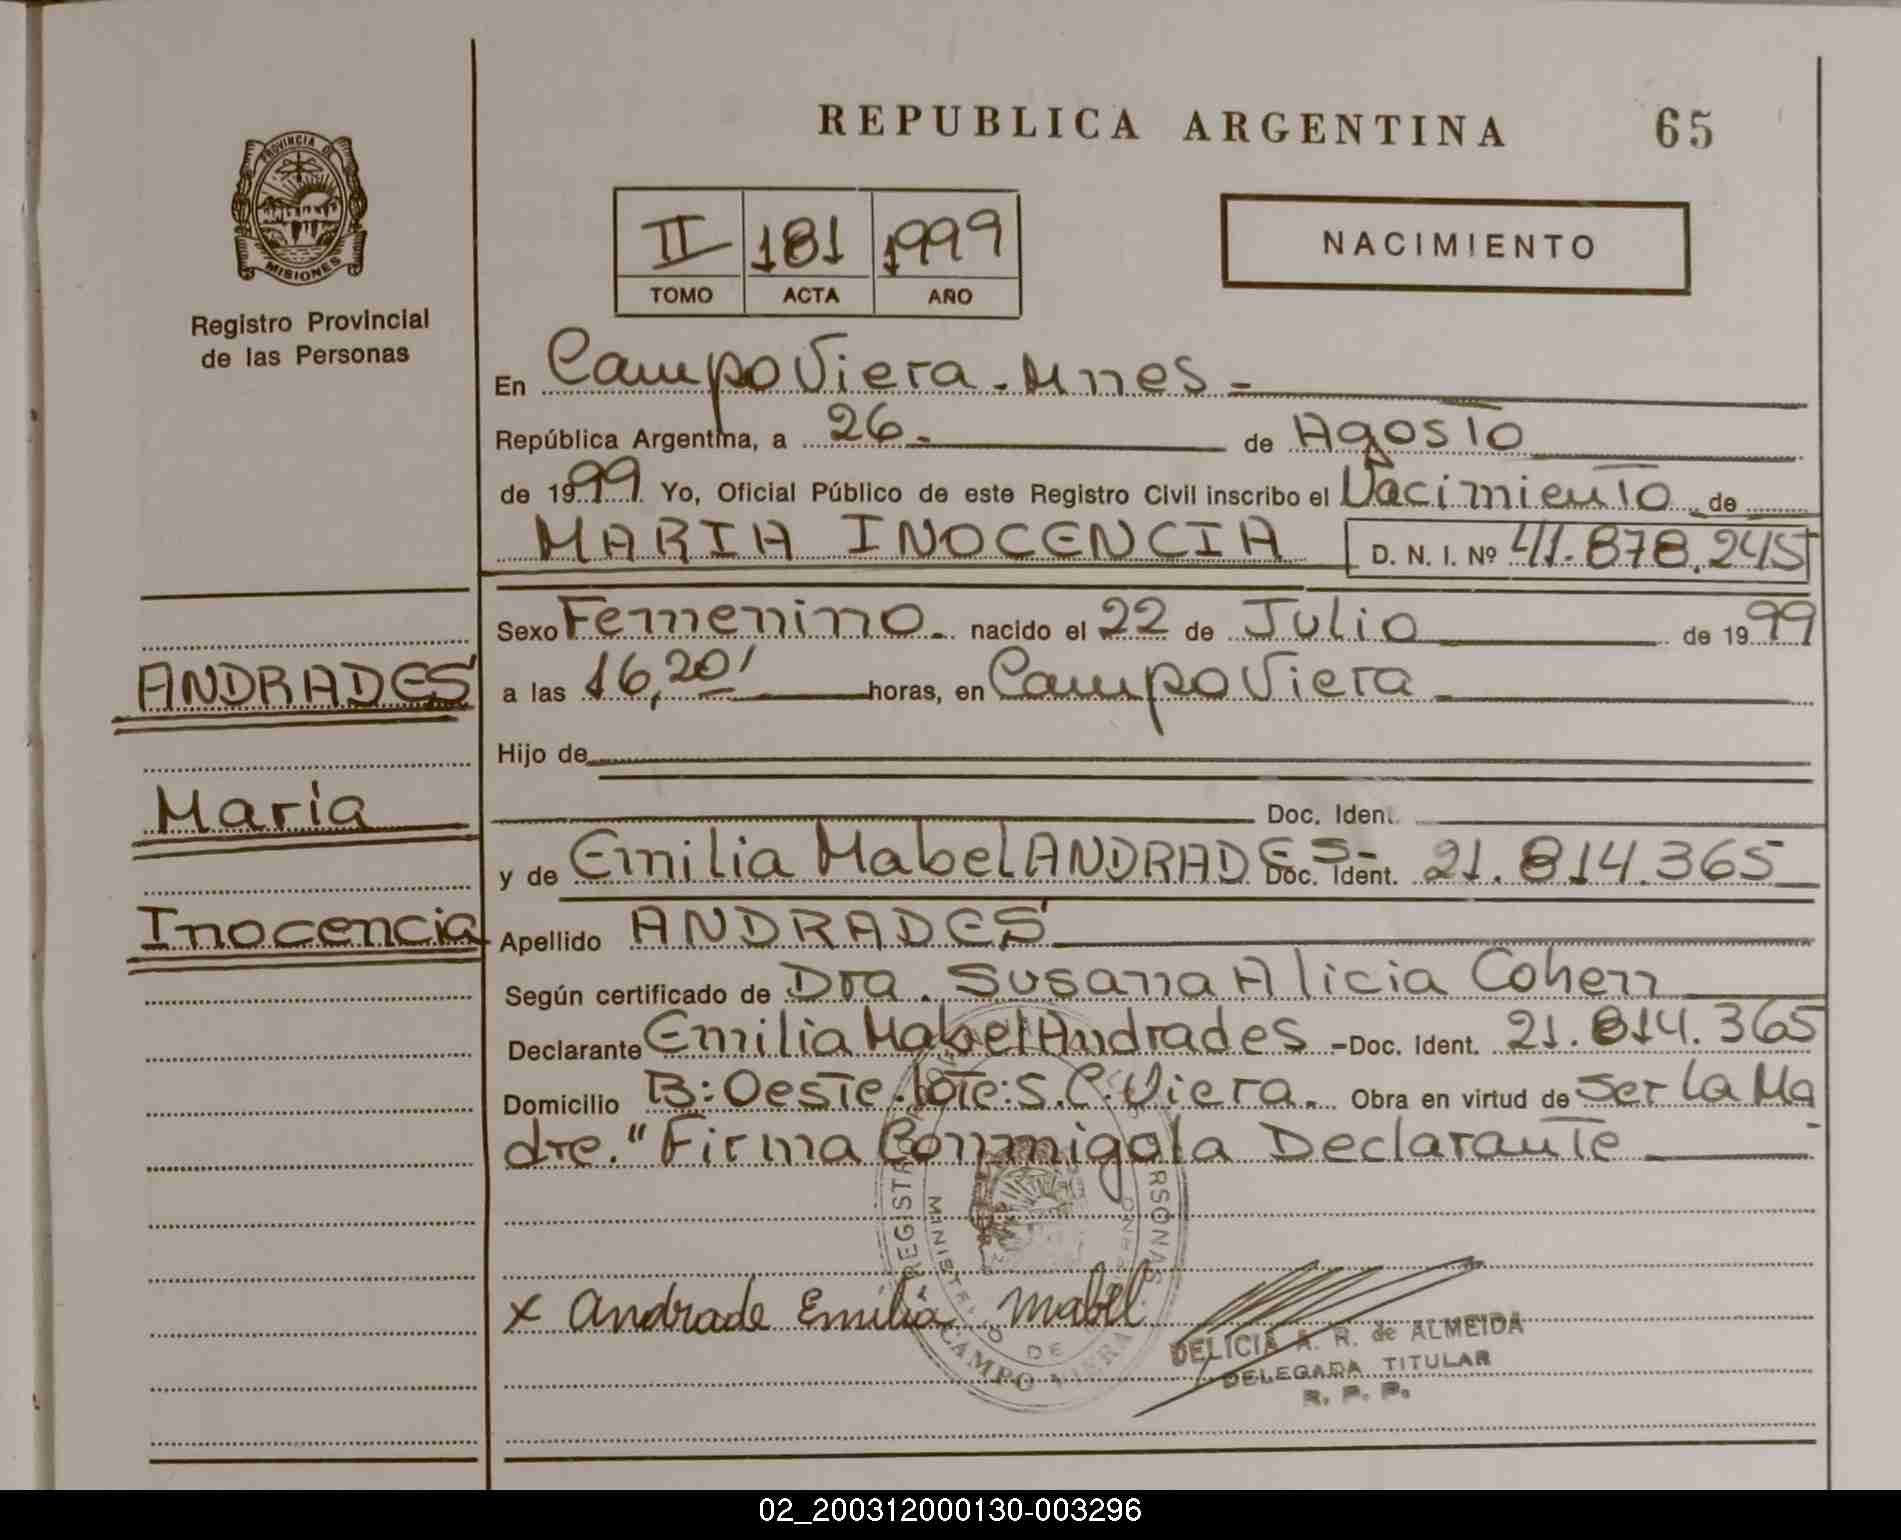 REPUBLICA ARGENTINA 65
PROVINCIA DE
MISIONES
Registro Provincial
de las Personas
II 181 1999
TOMO ACTA AÑO
NACIMIENTO
En Campo Viera - Mnes -
República Argentina, a 26 - de Agosto
de 1999 Yo, Oficial Público de este Registro Civil inscribo el Nacimiento de
MARIA INOCENCIA D. N. I. Nº 41.878.245
Sexo Femenino. nacido el 22 de Julio de 1999
ANDRADES
a las 16,20' horas, en Campo Viera
Hijo de
Maria
Doc. Ident.
y de Emilia Mabel ANDRADES- Doc. Ident. 21.814.365
Inocencia
Apellido ANDRADES
Según certificado de Dra. Susana Alicia Cohen
Declarante Emilia Mabel Andrades - Doc. Ident. 21.814.365
Domicilio B: Oeste. lote: S. C. Viera. Obra en virtud de Ser la Ma
dre." Firma Conmigo la Declarante
x Andrade Emilia Mabel
DELICIA A. R. de ALMEIDA
DELEGADA TITULAR
R. P. P.
02_200312000130-003296